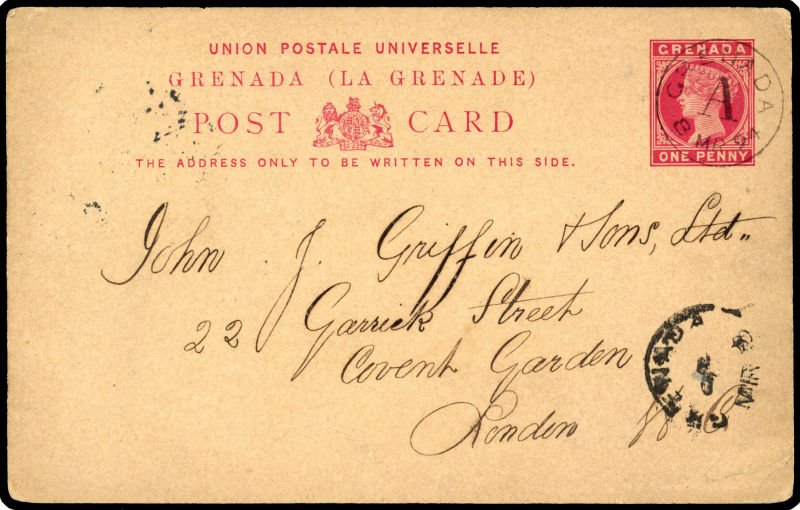 UNION POSTALE UNIVERSELLE
GRENADA (LA GRENADE)
POST CARD
THE ADDRESS ONLY TO BE WRITTEN ON THIS SIDE.
GRENADA
ONE PENNY
A
8 MR 91
John J. Griffin & Sons, Ltd.
22 Garrick Street
Covent Garden
London W C
GRENADA
MR